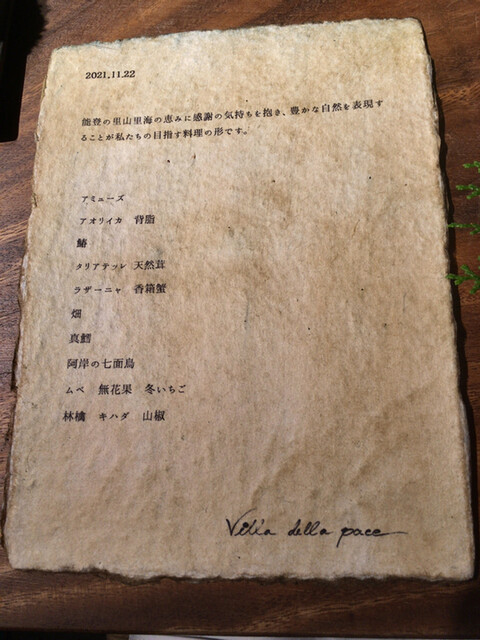 2021.11.22
能登の里山里海の恵みに感謝の気持ちを抱き、豊かな自然を表現す
ることが私たちの目指す料理の形です。
アミューズ
アオリイカ 背脂
鰆
タリアテッレ 天然茸
ラザーニャ 香箱蟹
畑
真鱈
阿岸の七面鳥
ムベ 無花果 冬いちご
林檎 キハダ 山椒
Villa della pace